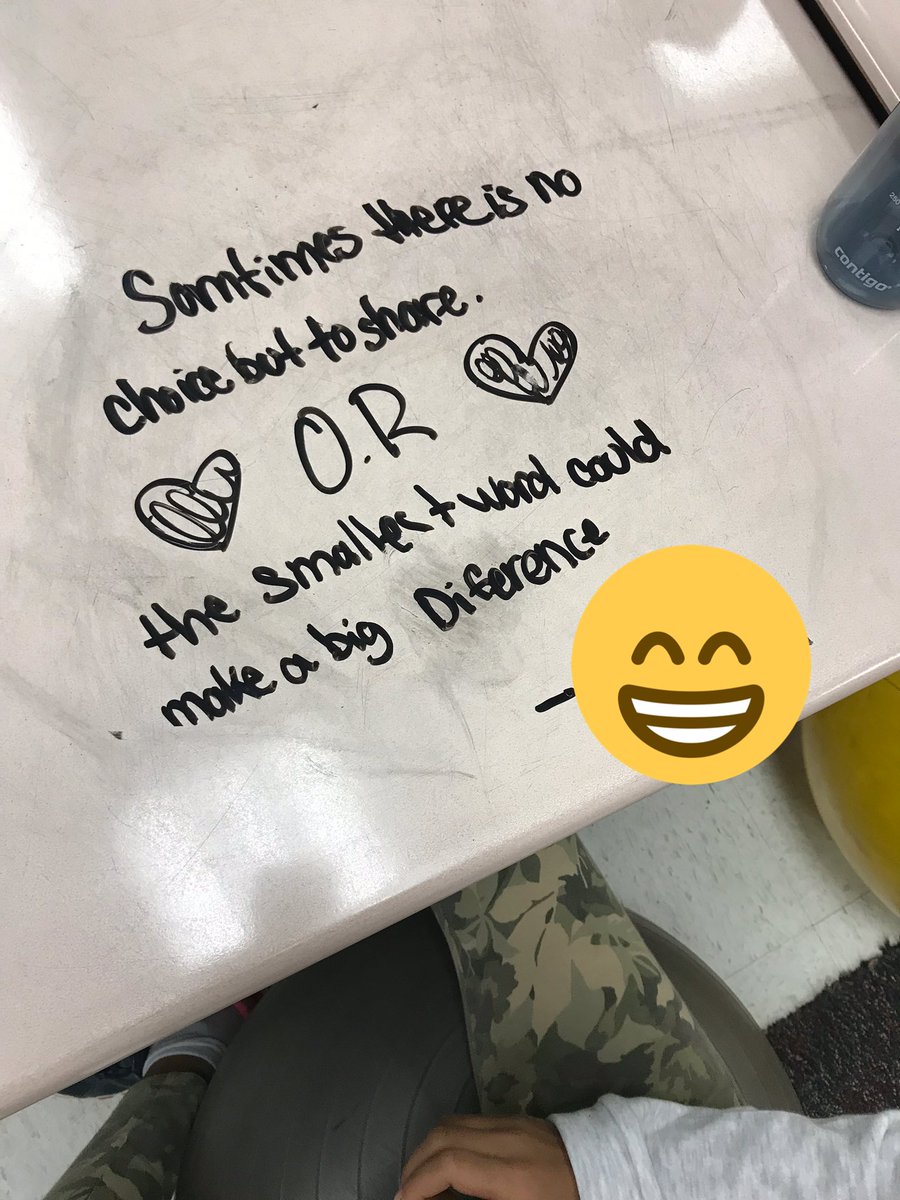 Somtimes there is no
choice but to share.
O.R
the smallest word could
make a big Diference
contigo